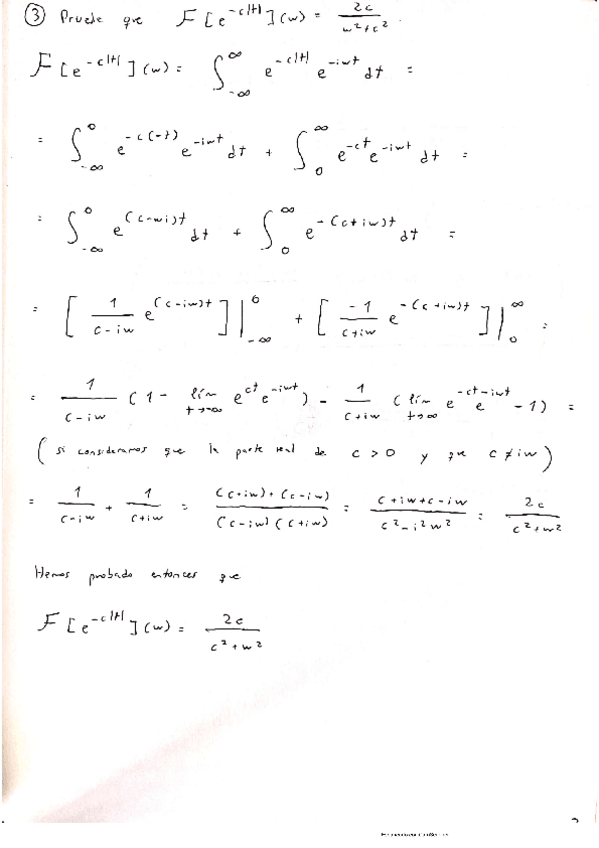 ③ Pruebe que F[e^{-c|t|}](w) = 2c / (w²+c²).
F[e^{-c|t|}](w) = ∫_{-∞}^{∞} e^{-c|t|} e^{-iwt} dt =
= ∫_{-∞}^{0} e^{-c(-t)} e^{-iwt} dt + ∫_{0}^{∞} e^{-ct} e^{-iwt} dt =
= ∫_{-∞}^{0} e^{(c-wi)t} dt + ∫_{0}^{∞} e^{-(c+iw)t} dt =
= [ 1/(c-iw) e^{(c-iw)t} ] |_{-∞}^{0} + [ -1/(c+iw) e^{-(c+iw)t} ] |_{0}^{∞} =
= 1/(c-iw) (1 - lím_{t→-∞} e^{ct} e^{-iwt}) - 1/(c+iw) (lím_{t→∞} e^{-ct} e^{-iwt} - 1) =
(si consideramos que la parte real de c > 0 y que c ≠ iw)
= 1/(c-iw) + 1/(c+iw) = ((c+iw)+(c-iw)) / ((c-iw)(c+iw)) = (c+iw+c-iw) / (c²-i²w²) = 2c / (c²+w²)
Hemos probado entonces que
F[e^{-c|t|}](w) = 2c / (c²+w²)